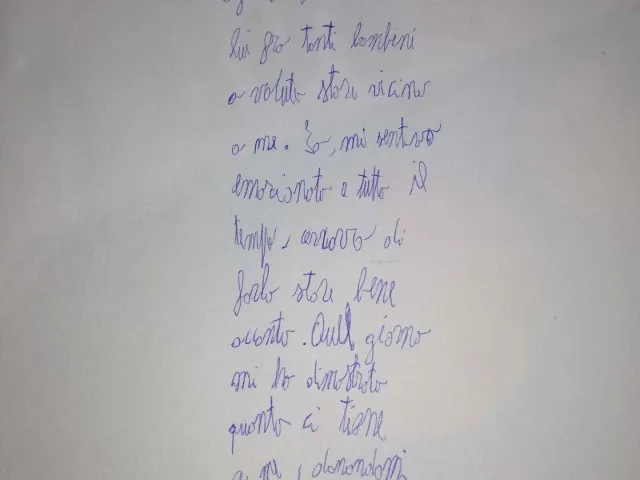 lui fra tanti bambini
a voluto stare vicino
a me. Io, mi sentivo
emozionato e tutto il
tempo, cercavo di
farlo stare bene
accanto. Quell giorno
mi ha dimostrato
quanto ci tiene
a me, donandomi